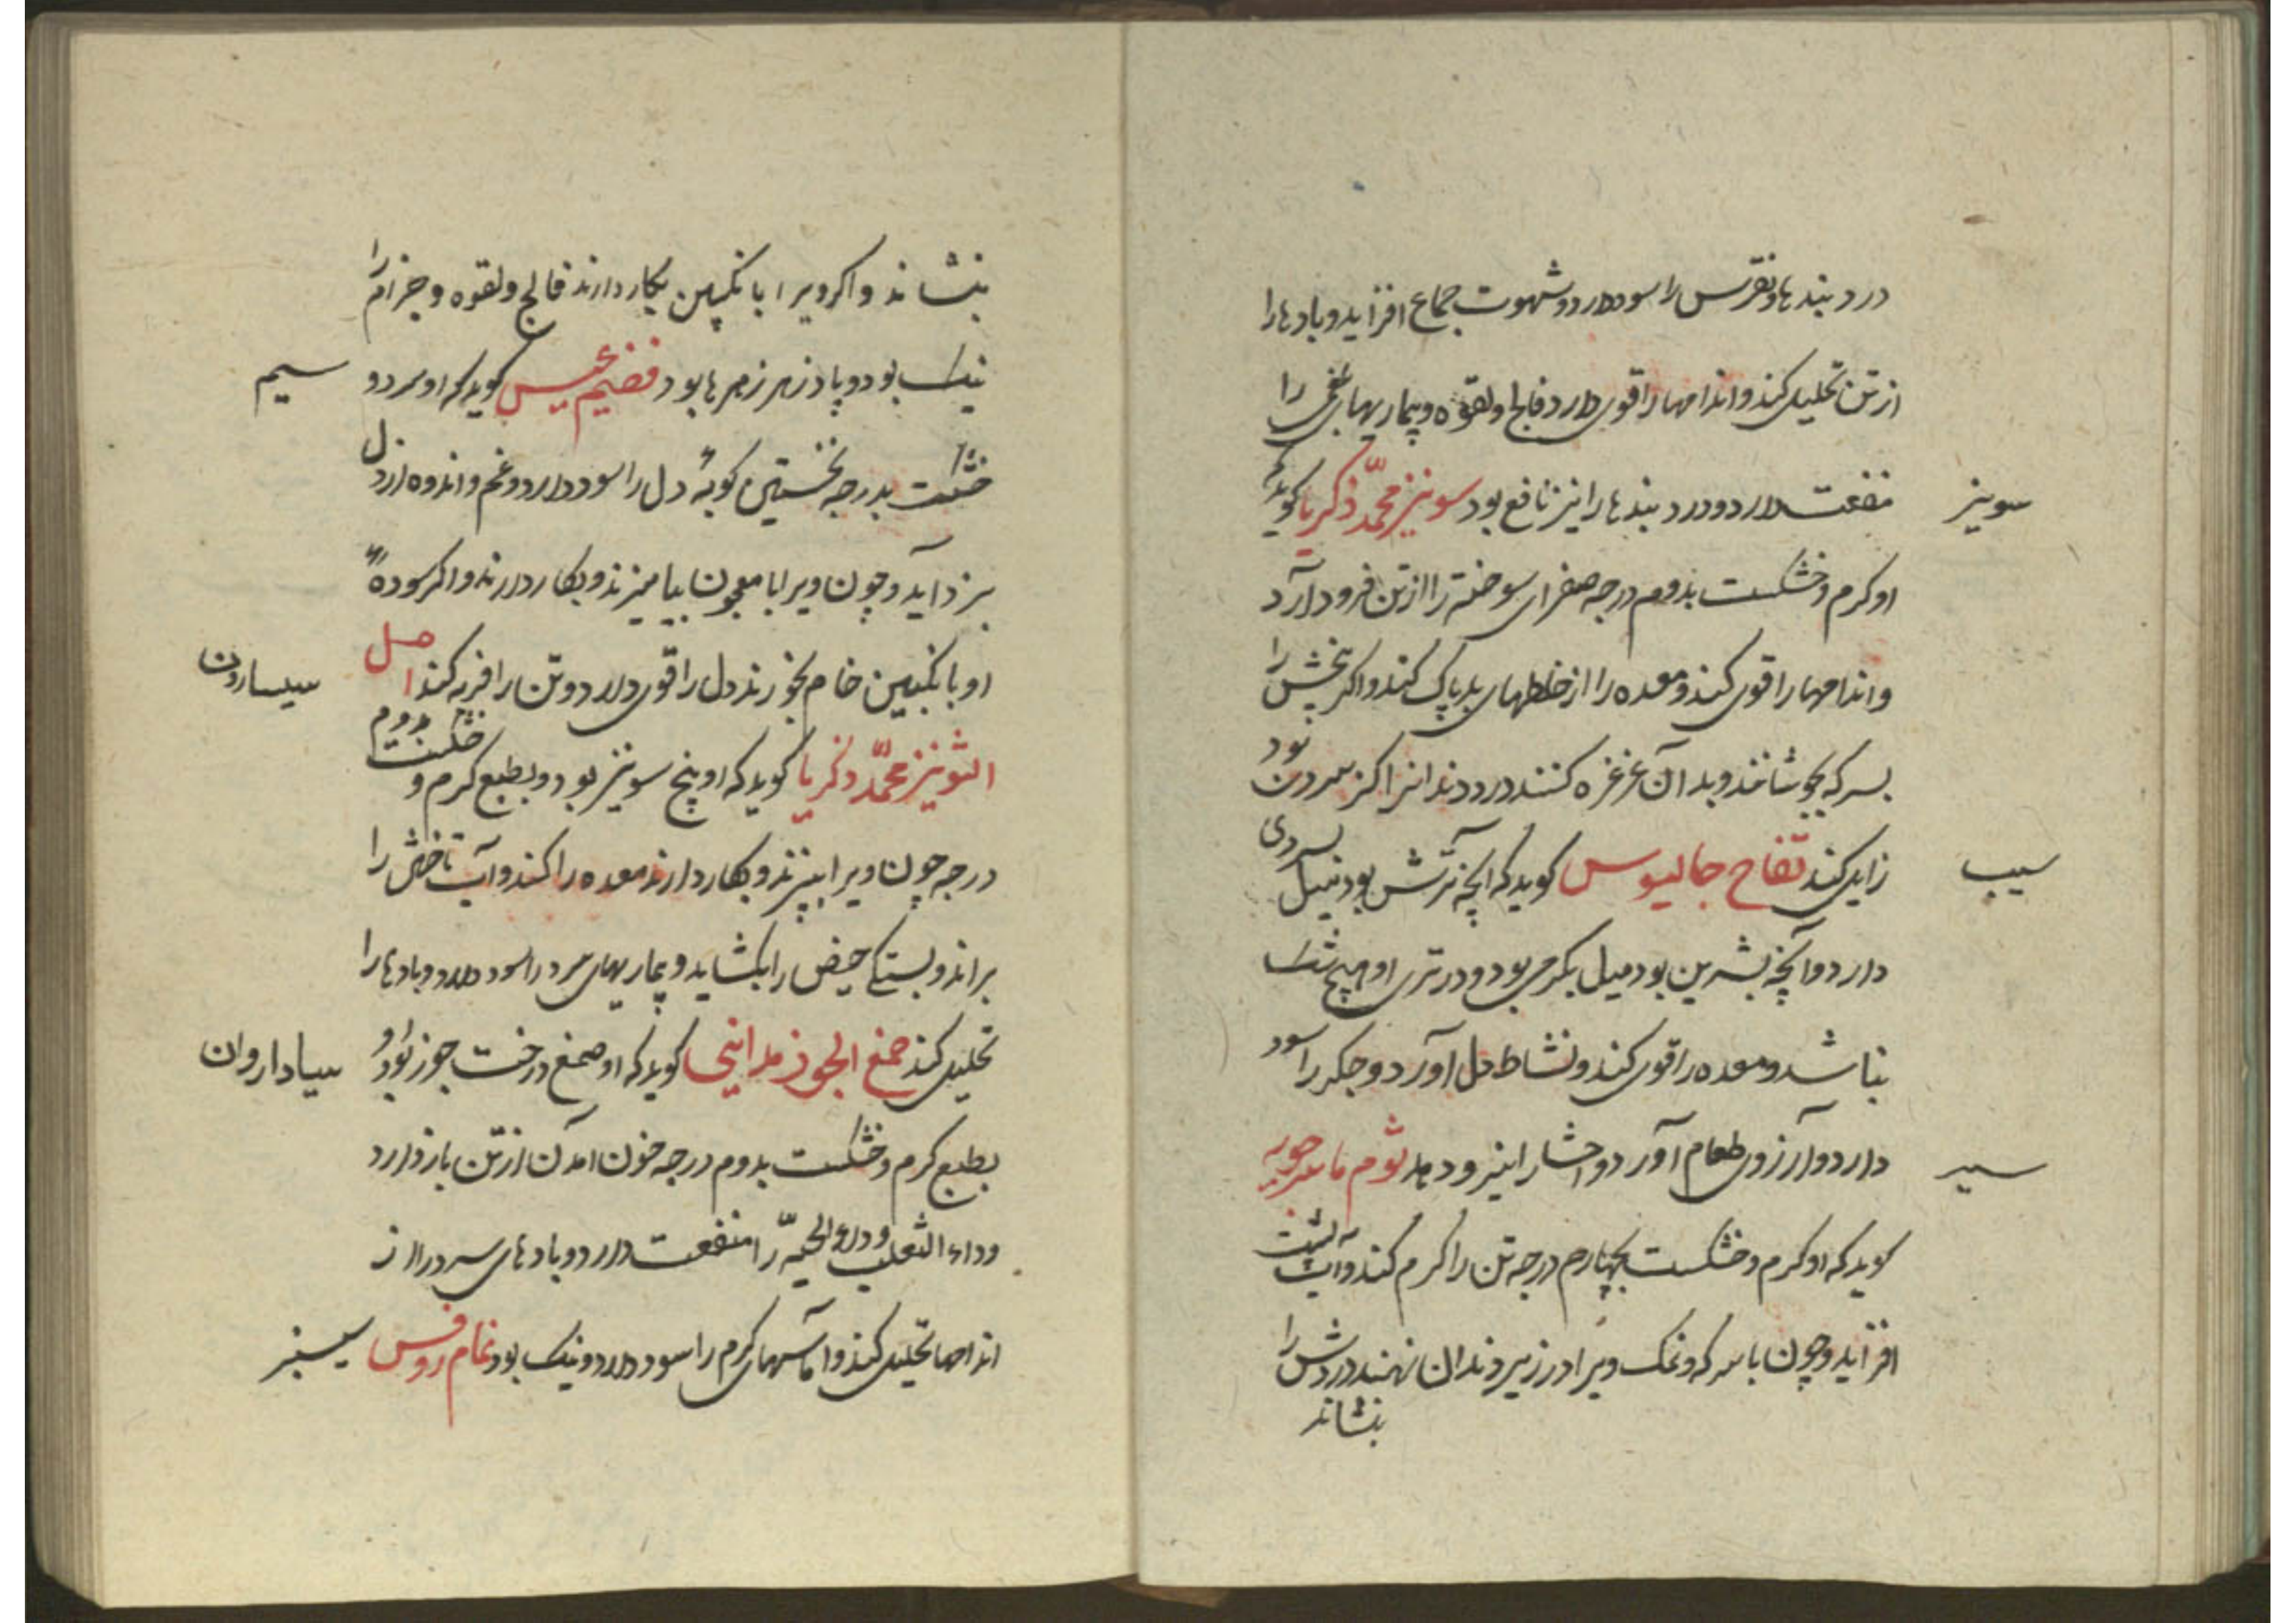 درد بندها و نقرس را سود دارد و شهوت جماع افزاید و بادها را
از تن تحلیل کند و اندامها را قوی دارد فالج و لقوه و بیماریهای بلغمی را
سونیز
منفعت دارد و درد بندها را نیز نافع بود سونیز محمّد ذکریا کوید
او کرم و خشکست بدوم درجه صفرای سوخته را از تن فرود آرد
و اندامها را قوی کند و معده را از خلطهای بد پاک کند و اکر تخمش را
بسرکه بجوشانند و بدان غرغره کنند درد دندانرا کز سردی بود
سیب
زایل کند تفاح جالینوس کوید که آنچه ترش بود میل بسردی
دارد و آنچه شیرین بود میل بکرمی بود و در تری او هیچ شک
نباشد و معده را قوی کند و نشاط دل آورد و جکر را سود
سیر
دارد و آرزوی طعام آورد و احشا را نیرو دهد ثوم ماسرجویه
کوید که او کرم و خشکست بچهارم درجه تن را کرم کند و آب پشت
افزاید و چون با سرکه و نمک ویرا در زیر دندان نهند دردش را
بنشاند
بنشاند و اکر ویرا با نکبین بکار دارند فالج و لقوه و جزام را
سیم
نیک بود و پادزهر زهرها بود فضیم کوید که او سرد و
خشکست بدرجه نخستین کوبه دل را سود دارد و غم و اندوه از دل
بزداید و چون ویرا با معجون بیامیزند و بکار دارند و اکر سوده
سیسارون
او با نکبین خام بخورند دل را قوی دارد و تن را فربه کند اصل
الشونیز محمّد ذکریا کوید که او بیخ سونیز بود و بطبع کرم و خشکست بدوم
درجه چون ویرا بپزند و بکار دارند معده را کند و آب تاختن را
براند و بستکی حیض را بکشاید و بیماریهای سرد را سود دارد و بادها را
سیاداروان
تحلیل کند صمغ الجوز مداینی کوید که او صمغ درخت جوز بود و
بطبع کرم و خشکست بدوم درجه خون آمدن از تن بازدارد
و داء الثعلب و داء الحیّه را منفعت دارد و بادهای سرد را از
سیسنبر
اندامها تحلیل کند و آماسهای کرم را سود دارد و نیک بود نمام روفس